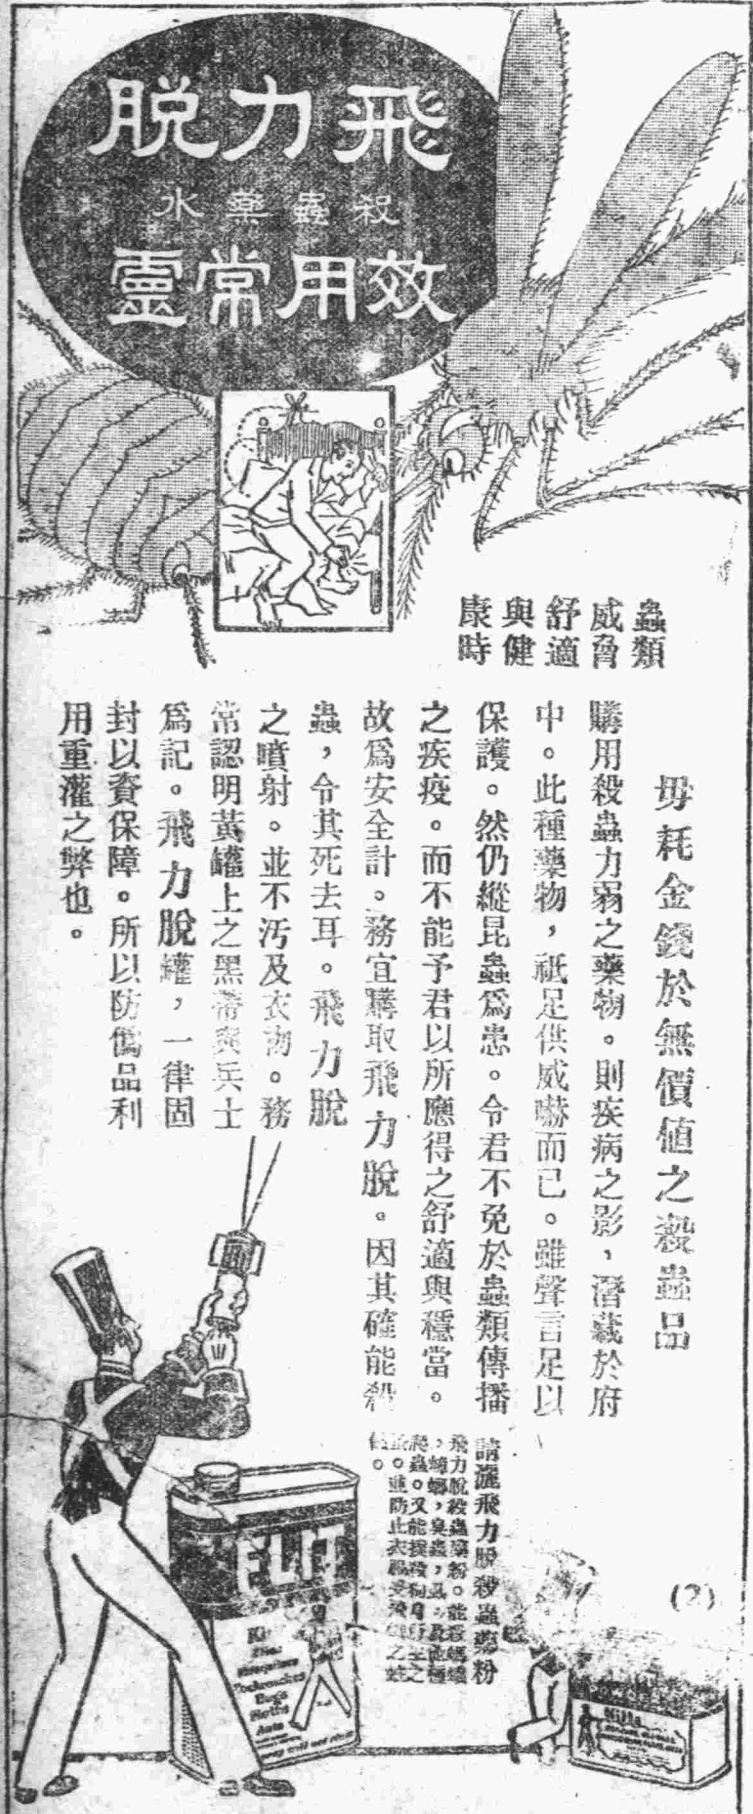 飛力脱
殺蟲藥水
效用常靈
蟲類
威脅
舒適
與健
康時
毋耗金錢於無價値之殺蟲品
購用殺蟲力弱之藥物。則疾病之影，潛藏於府
中。此種藥物，祗足供威嚇而已。雖聲言足以
保護。然仍縱昆蟲爲患。令君不免於蟲類傳播
之疾疫。而不能予君以所應得之舒適與穩當。
故爲安全計。務宜購取飛力脫。因其確能殺
蟲，令其死去耳。飛力脫
之噴射。並不汚及衣物。務
常認明黃罐上之黑帶與兵士
爲記。飛力脫罐，一律固
封以資保障。所以防僞品利
用重灌之弊也。
請灑飛力脫殺蟲藥粉
飛力脫殺蟲藥粉。能殺螞蟻
，蟑螂，臭蟲，蝨，及他種
爬蟲。又能撲殺狗身所生之
蚤。並防止衣服受
(2)
FLIT
Kills
Flies
Mosquitoes
Cockroaches
Bugs
Moths
Ants
Kills